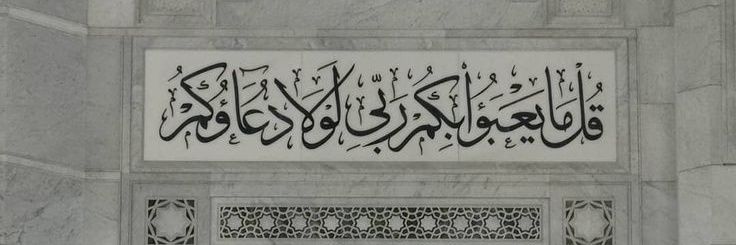 قُلْ مَا يَعْبَؤُا بِكُمْ رَبِّي لَوْلَا دُعَاؤُكُمْ